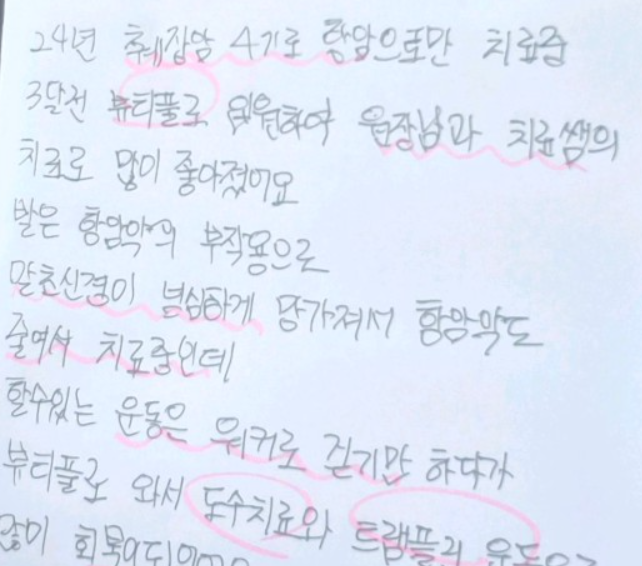 24년 췌장암 4기로 항암으로만 치료중
3달전 뷰티플로 입원하여 원장님과 치료쌤의
치료로 많이 좋아졌어요
발은 항암약의 부작용으로
말초신경이 넘심하게 망가져서 항암약도
줄여서 치료중인데
할수있는 운동은 워커로 걷기만 하다가
뷰티플로 와서 도수치료와 트램플린 운동으로
많이